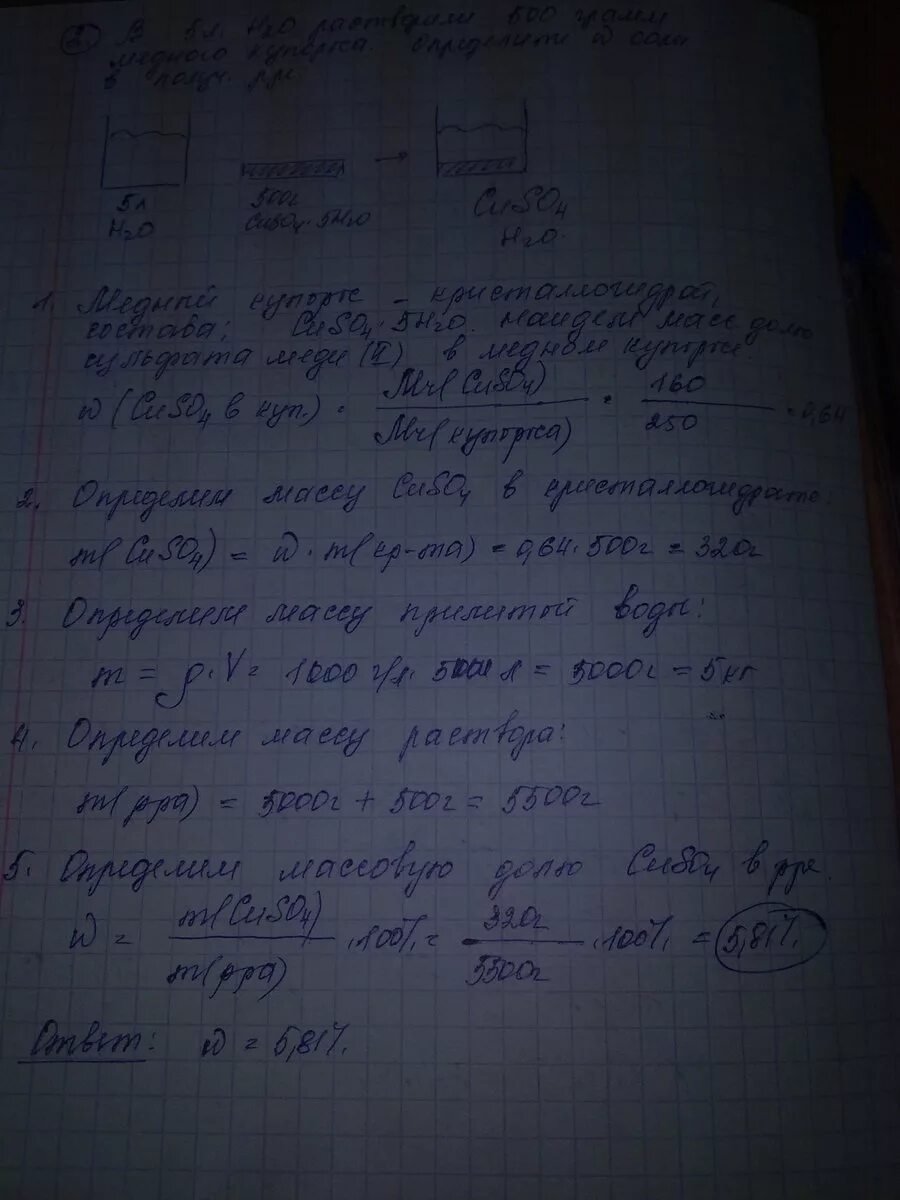 2. В 5л. H₂O растворили 500 грамм
медного купороса. Определите ω соли
в получ. рре
5л
H₂O
500г
CuSO₄·5H₂O
CuSO₄
H₂O.
1. Медный купорос – кристаллогидрат,
состава: CuSO₄·5H₂O. Найдем масс долю
сульфата меди (II) в медном купоросе
ω (CuSO₄ в куп.) = Mr(CuSO₄) / Mr(купороса) = 160 / 250 = 0,64
2. Определим массу CuSO₄ в кристаллогидрате:
m(CuSO₄) = ω · m(кр-та) = 0,64 · 500г = 320г
3. Определим массу прилитой воды:
m = ρ·V = 1000 г/л · 5 л = 5000г = 5кг
4. Определим массу раствора:
m(рра) = 5000г + 500г = 5500г
5. Определим массовую долю CuSO₄ в рре.
ω = m(CuSO₄) / m(рра) ·100% = 320г / 5500г ·100% = 5,81%.
Ответ: ω = 5,81%.